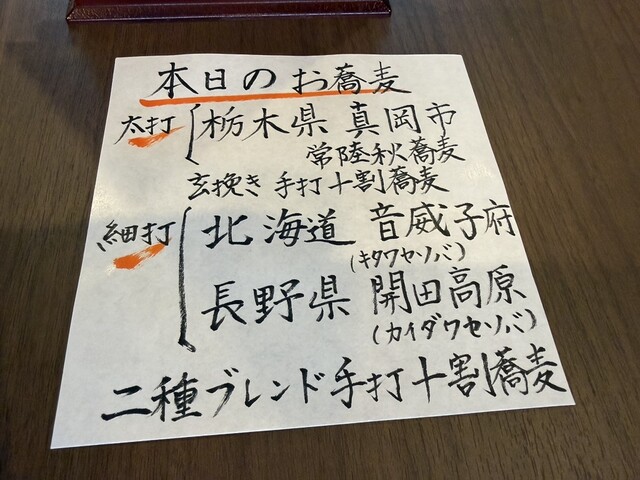 本日のお蕎麦
太打 栃木県 真岡市
常陸秋蕎麦
玄挽き 手打十割蕎麦
細打 北海道 音威子府
(キタワセソバ)
長野県 開田高原
(カイダワセソバ)
二種ブレンド手打十割蕎麦